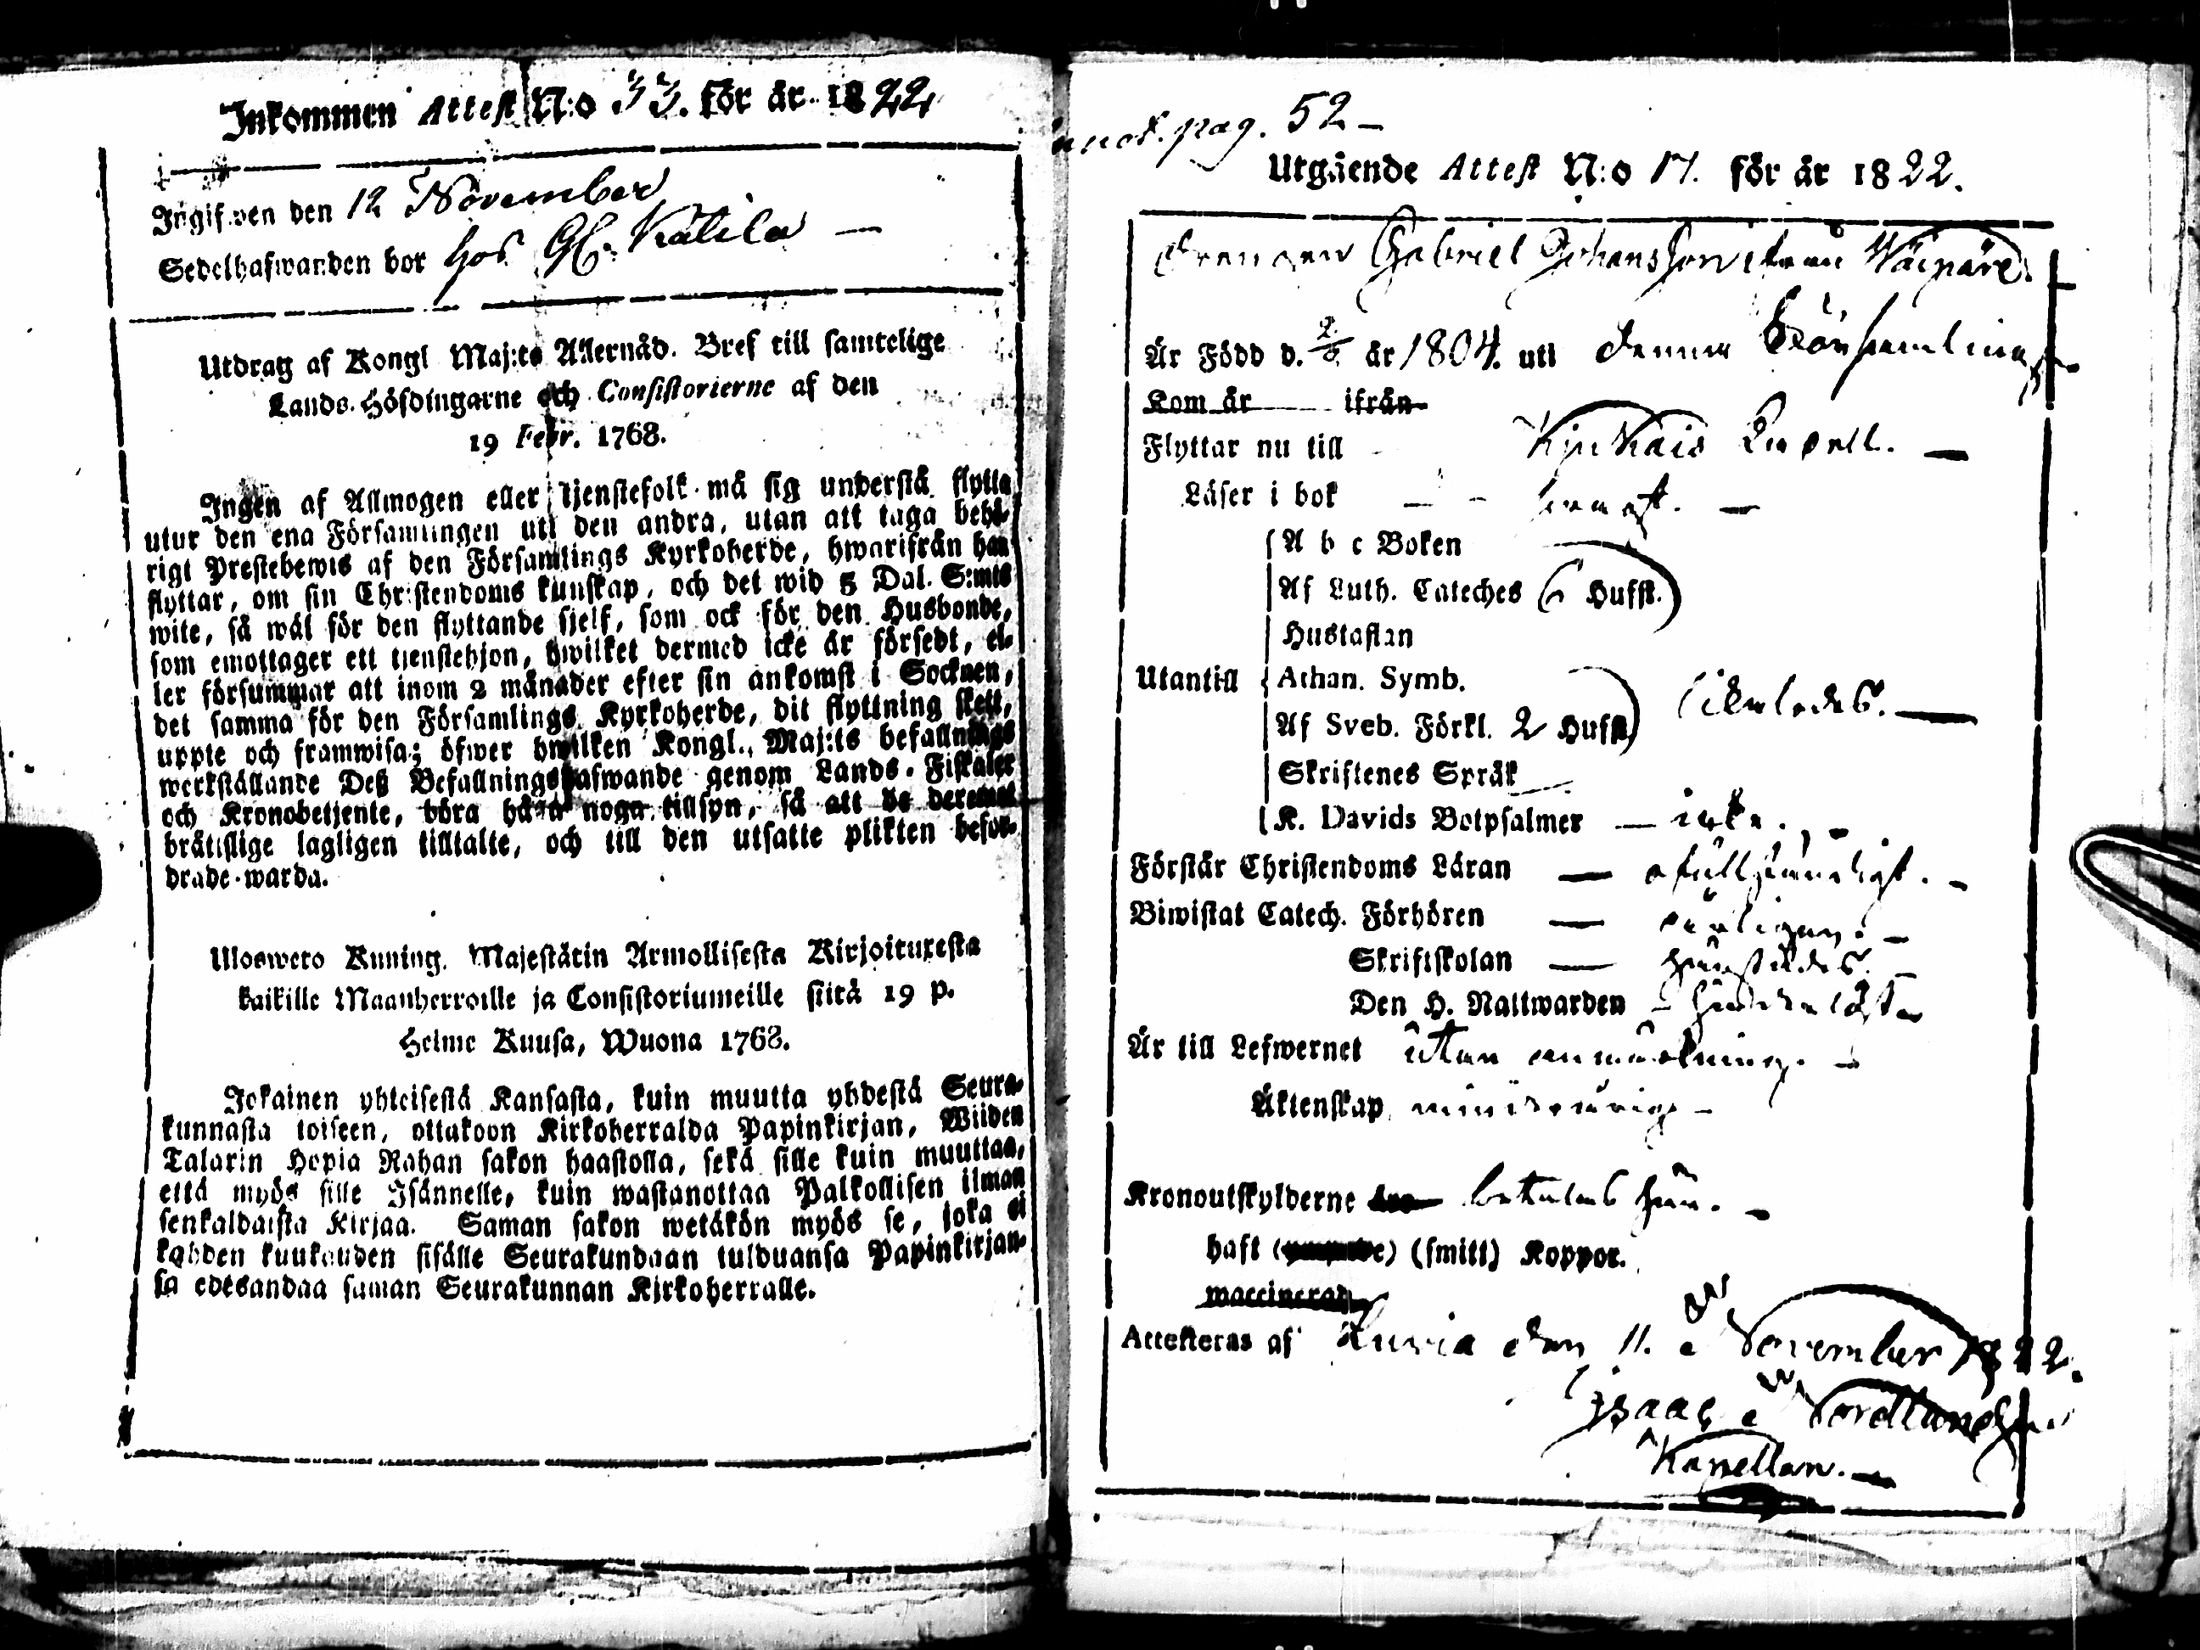 Inkommen Attest N:o 33. för år 1822
Ingifwen den 12 November
Sedelhafwanden bor hos Gl. Katila —
Utdrag af Kongl Maj:ts Allernåd. Bref till samtelige
Lands-Höfdingarne och Consistorierne af den
19 Febr. 1768.
Ingen af Allmogen eller tjenstefolk må sig understå flytta
utur den ena Församlingen uti den andra, utan att taga behö-
rigt Prestebewis af den Församlings Kyrkoherde, hwarifrån han
flyttar, om sin Christendoms kunskap, och det wid 5 Dal. S:mts
wite, så wäl för den flyttande sjelf, som ock för den Husbonde,
som emottager ett tjenstehjon, hwilket dermed icke är försedt, el-
ler försummar att inom 2 månader efter sin ankomst i Socknen,
det samma för den Församlings Kyrkoherde, dit flyttning skett,
uppte och framwisa; öfwer hwilken Kongl. Maj:ts befallnings
werkställande Deß Befallningshafwande genom Lands-Fiskaler
och Kronobetjente, böra hafwa noga tillsyn, så att de deremot
brättslige lagligen tilltalte, och till den utsatte plikten befor-
drade warda.
Uloswero Kuning. Majestätin Armollisesta Kirjoituxesta
kaikille Maanherroille ja Consistoriumeille siitä 19 p.
Helme Kuusa, Wuona 1768.
Jokainen yhteisestä Kansasta, kuin muutta yhdestä Seura-
kunnasta toiseen, ottakoon Kirkoherralda Papinkirjan, Wiiden
Talarin Hopia Rahan sakon haastolla, sekä sille kuin muuttaa,
että myös sille Isännelle, kuin wastanottaa Palkollisen ilman
senkaldaista Kirjaa. Saman sakon wetäkön myös se, joka ei
kahden kuukauden sisälle Seurakundaan tulduansa Papinkirjan-
sa edesandaa saman Seurakunnan Kirkoherralle.
pag. 52 —
Utgående Attest N:o 17. för år 1822.
Drengen Gabriel Johansson ifrån Wäipäre.
Är Född d. 2/6 år 1804. uti denna Församling
Kom år ifrån
Flyttar nu till Kjukais Capell. —
Läser i bok —
A b c Boken
Af Luth. Cateches 6 Hufst.
Hustaflan
Utantill Athan. Symb.
Af Sveb. Förkl. 2 Hufst. likaledes. —
Skriftenes Språk
K. Davids Botpsalmer — icke. —
Förstår Christendoms Läran — ofullständigt. —
Biwistat Catech. Förhören — årligen. —
Skriftskolan —
Den H. Nattwarden —
Är till Lefwernet utan anmärkning. —
Äktenskap minderårig —
Kronoutskylderne äro betalas här. —
haft (smitt) Koppor.
waccinerad
Attesteras af Luvia den 11. November 1822.
Isaac Nordlund
Kapellan. —